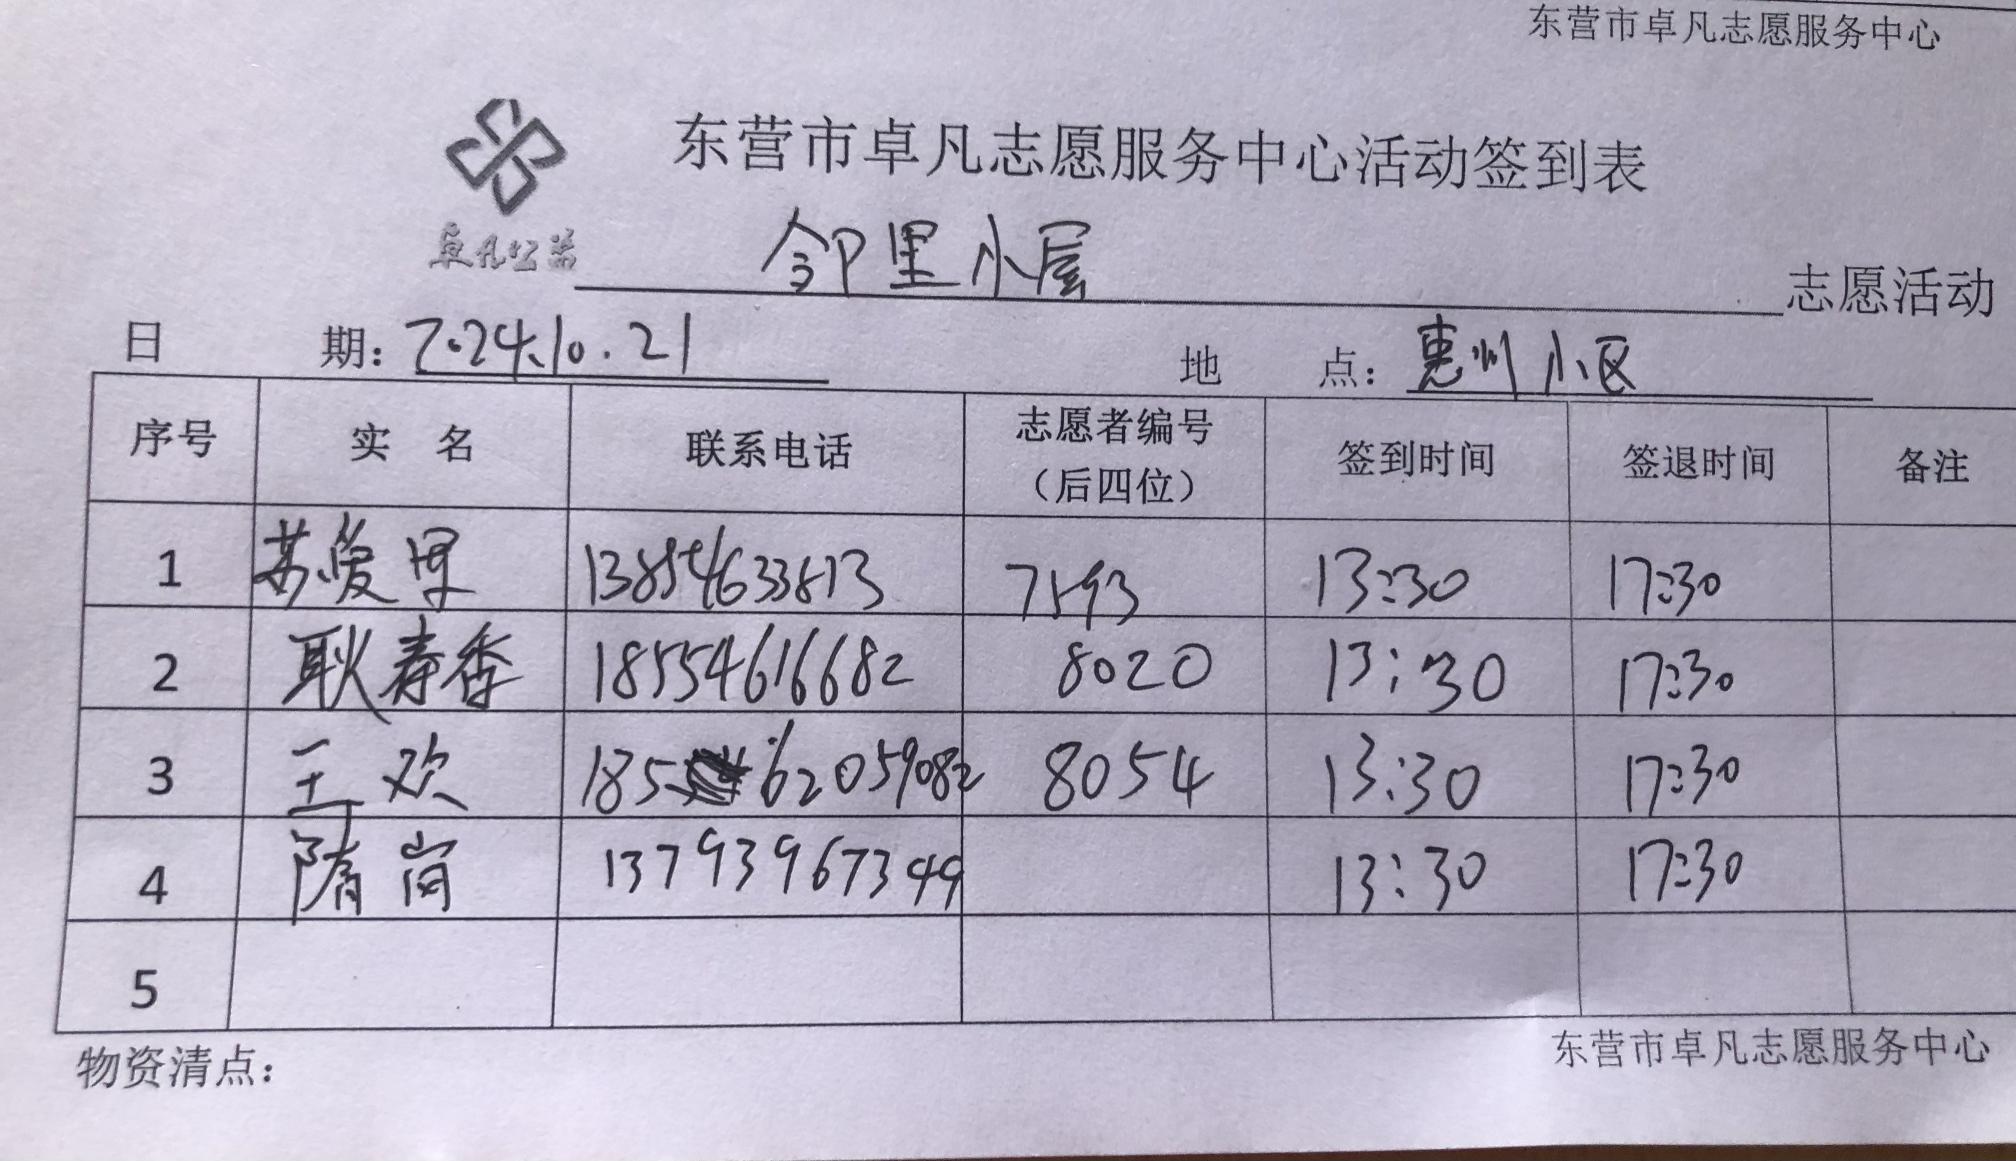 东营市卓凡志愿服务中心
东营市卓凡志愿服务中心活动签到表
卓凡公益
邻里小屋 志愿活动
日期: 2.24.10.21 地点: 惠州小区
序号 实名 联系电话 志愿者编号（后四位） 签到时间 签退时间 备注
1 苏爱军 13854633813 7593 13:30 17:30
2 耿寿香 18554616682 8020 13:30 17:30
3 王欢 18562059082 8054 13:30 17:30
4 隋岗 13793967349 13:30 17:30
5
物资清点:
东营市卓凡志愿服务中心